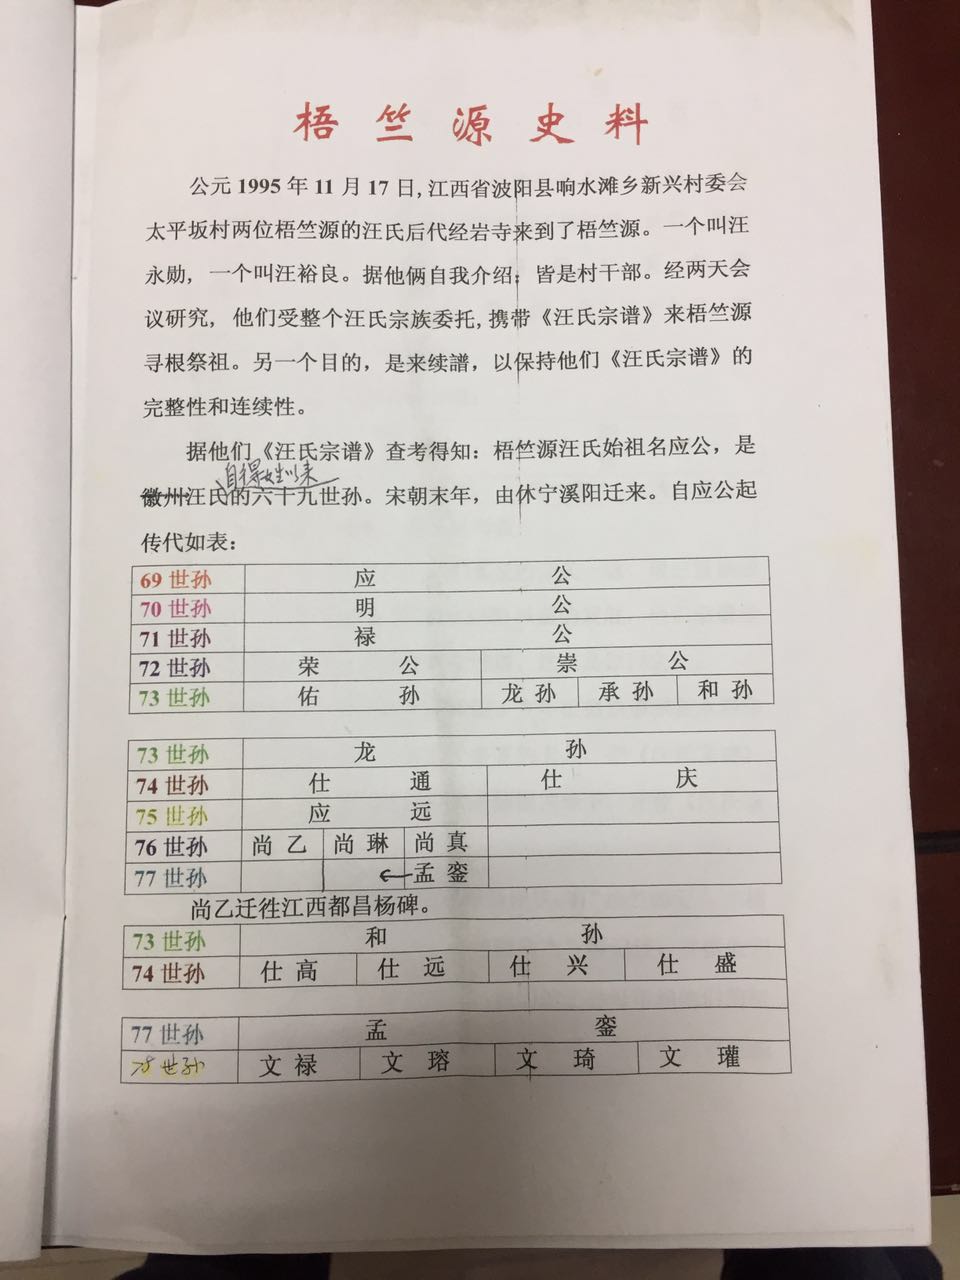 梧竺源史料
公元 1995 年 11 月 17 日,江西省波阳县响水滩乡新兴村委会
太平坂村两位梧竺源的汪氏后代经岩寺来到了梧竺源。一个叫汪
永勋，一个叫汪裕良。据他俩自我介绍；皆是村干部。经两天会
议研究，他们受整个汪氏宗族委托,携带《汪氏宗谱》来梧竺源
寻根祭祖。另一个目的，是来续譜，以保持他们《汪氏宗谱》的
完整性和连续性。
据他们《汪氏宗谱》查考得知：梧竺源汪氏始祖名应公，是
自得姓以来
徽州汪氏的六十九世孙。宋朝末年，由休宁溪阳迁来。自应公起
传代如表：
69 世孙 应 公
70 世孙 明 公
71 世孙 禄 公
72 世孙 荣 公 崇 公
73 世孙 佑 孙 龙 孙 承 孙 和 孙
73 世孙 龙 孙
74 世孙 仕 通 仕 庆
75 世孙 应 远
76 世孙 尚 乙 尚 琳 尚 真
77 世孙 孟 銮
尚乙迁徃江西都昌杨碑。
73 世孙 和 孙
74 世孙 仕 高 仕 远 仕 兴 仕 盛
77 世孙 孟 銮
78 世孙 文 禄 文 瑢 文 琦 文 瓘